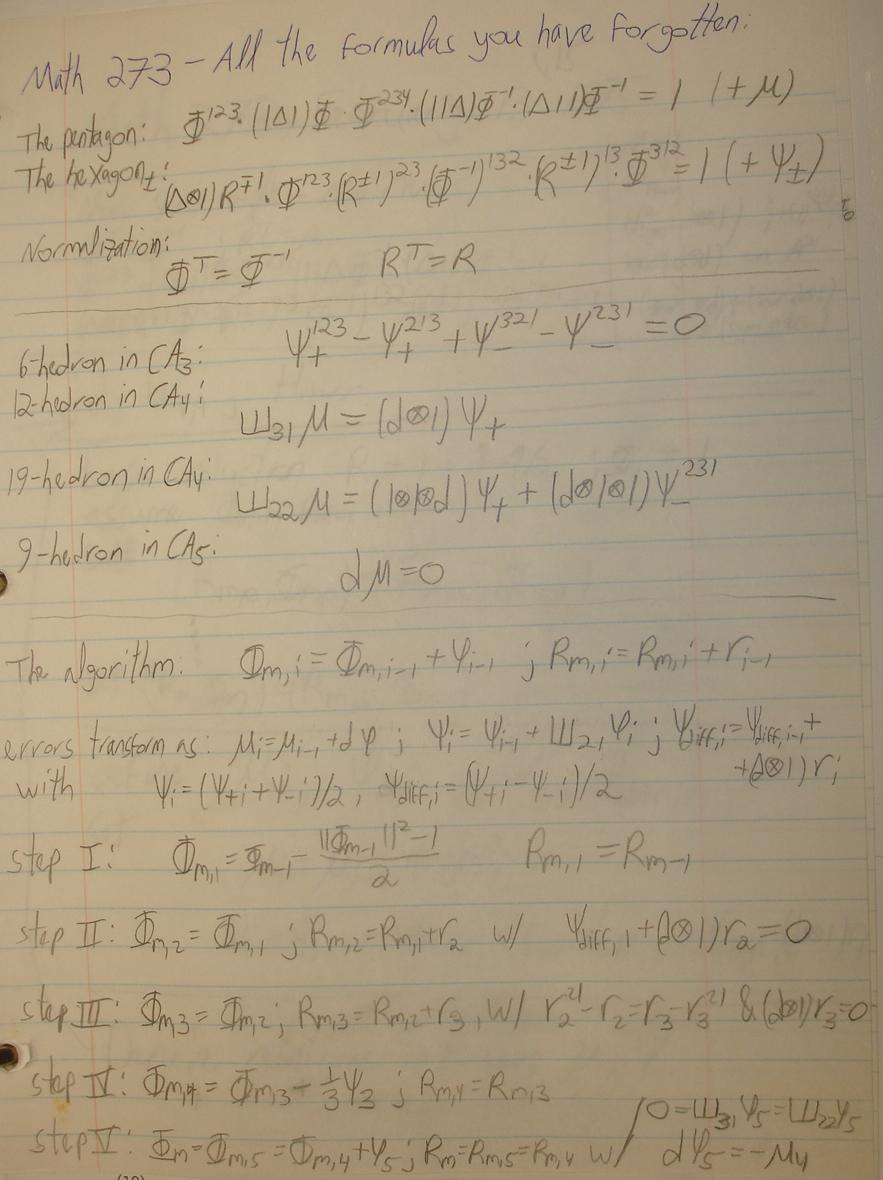 Math 273 - All the formulas you have forgotten:
The pentagon: Φ¹²³·(1Δ1)Φ·Φ²³⁴·(11Δ)Φ⁻¹·(Δ11)Φ⁻¹ = 1 (+μ)
The hexagon±: (Δ⊗1)R^∓1·Φ¹²³·(R^±1)²³·(Φ⁻¹)¹³²·(R^±1)¹³·Φ³¹² = 1 (+Ψ±)
Normalization: Φᵀ = Φ⁻¹ Rᵀ = R
6-hedron in CA₃: Ψ₊¹²³ - Ψ₊²¹³ + Ψ₋³²¹ - Ψ₋²³¹ = 0
12-hedron in CA₄: Ш₃₁μ = (d⊗1)Ψ₊
19-hedron in CA₄: Ш₂₂μ = (1⊗1⊗d)Ψ₊ + (d⊗1⊗1)Ψ₋²³¹
9-hedron in CA₅: dμ = 0
The algorithm: Φm,i = Φm,i-1 + φi-1 ; Rm,i = Rm,i + ri-1
errors transform as: μi = μi-1 + dφ ; Ψi = Ψi-1 + Ш₂₁φi ; Ψdiff,i = Ψdiff,i-1 +
+(d⊗1)ri
with Ψi = (Ψ+i + Ψ-i)/2, Ψdiff,i = (Ψ+i - Ψ-i)/2
step I: Φm,1 = Φm-1 - (||Φm-1||² - 1)/2 Rm,1 = Rm-1
step II: Φm,2 = Φm,1 ; Rm,2 = Rm,1 + r₂ w/ Ψdiff,1 + (d⊗1)r₂ = 0
step III: Φm,3 = Φm,2 ; Rm,3 = Rm,2 + r₃, w/ r₂²¹ - r₂ = r₃ - r₃²¹ & (d⊗1)r₃ = 0
step IV: Φm,4 = Φm,3 - 1/3 Ψ₃ ; Rm,4 = Rm,3
step V: Φm = Φm,5 = Φm,4 + φ₅ ; Rm = Rm,5 = Rm,4 w/ 0 = Ш₃₁φ₅ = Ш₂₂φ₅
dφ₅ = -μ₄